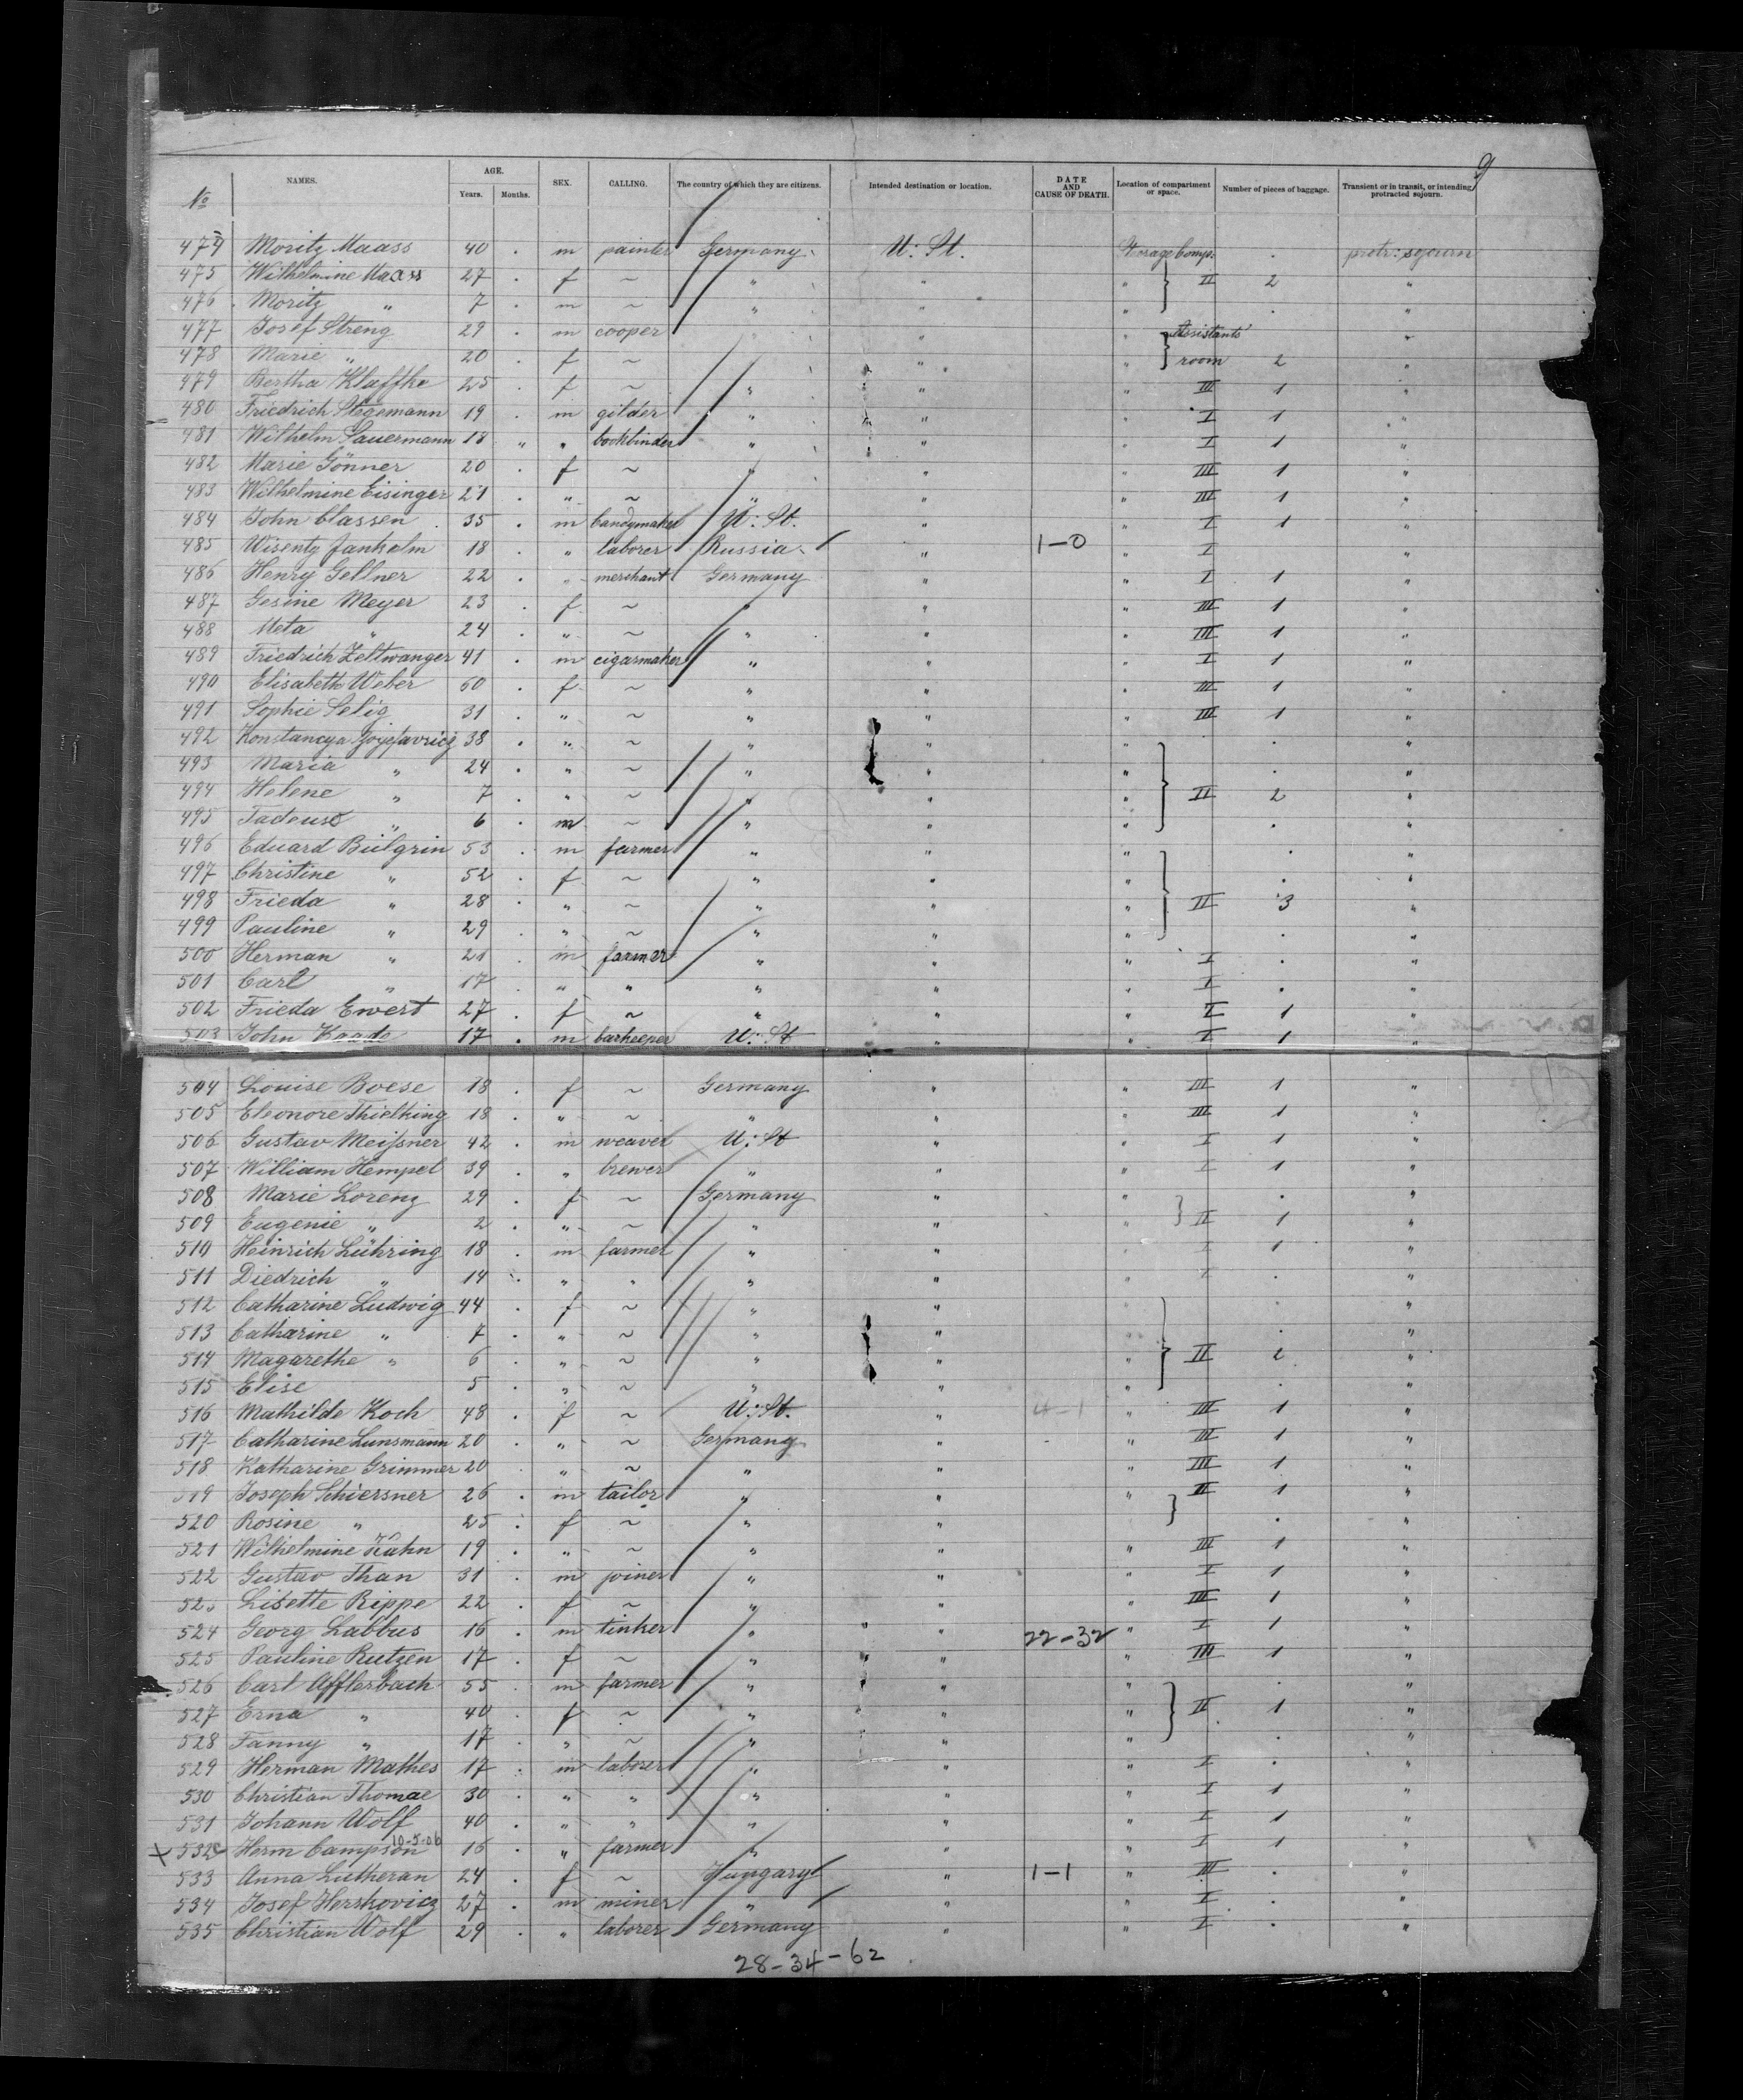 9
No NAMES. AGE. Years. Months. SEX. CALLING. The country of which they are citizens. Intended destination or location. DATE AND CAUSE OF DEATH. Location of compartment or space. Number of pieces of baggage. Transient or in transit, or intending protracted sojourn.
474 Moritz Maass 40 . m painter Germany U: St. Storage Comp. . protr: sojourn
475 Wilhelmine Maass 27 . f ~ " " " } II 2 "
476 Moritz " 7 . m ~ " " " . "
477 Josef Streng 29 . m cooper " " " Assistants' "
478 Marie " 20 . f ~ " " } room 2 "
479 Bertha Klaffke 25 . f ~ " " " III 1 "
480 Friedrich Stegemann 19 . m gilder " " " I 1 "
481 Wilhelm Sauermann 18 " " bookbinder " " " I 1 "
482 Marie Gönner 20 . f ~ " " " III 1 "
483 Wilhelmine Eisinger 21 . " ~ " " " III 1 "
484 John Classen 35 . m Candymaker U: St. " " I 1 "
485 Wisentz Jankelm 18 . " laborer Russia " 1-0 " I "
486 Henry Gellner 22 . " merchant Germany " " I 1 "
487 Gesine Meyer 23 . f ~ " " " III 1 "
488 Meta " 24 . " ~ " " " III 1 "
489 Friedrich Zeltwanger 41 . m cigarmaker " " " I 1 "
490 Elisabeth Weber 60 . f ~ " " " III 1 "
491 Sophie Selig 31 . " ~ " " " III 1 "
492 Konstancya 38 . " ~ " " " . "
493 Maria " 24 . " ~ " " " . "
494 Helene " 7 . " ~ " " " } II 2 "
495 Tadeus " 6 . m ~ " " " . "
496 Eduard Bülgrin 53 . m farmer " " " . "
497 Christine " 52 . f ~ " " " . "
498 Frieda " 28 . " ~ " " " } II 3 "
499 Pauline " 29 . " ~ " " " . "
500 Herman " 21 . m farmer " " " I . "
501 Carl " 17 . " " " " " I . "
502 Frieda Ewert 27 . f ~ " " " I 1 "
503 John Kaade 17 . m barkeeper U: St " " I 1 "
504 Louise Boese 18 . f ~ Germany " " III 1 "
505 Eleonore Thielking 18 . " ~ " " " III 1 "
506 Gustav Meißner 42 . m weaver U: St " " I 1 "
507 William Hempel 39 . " brewer " " " I 1 "
508 Marie Lorenz 29 . f ~ Germany " " . "
509 Eugenie " 2 . " ~ " " " } II 1 "
510 Heinrich Lühring 18 . m farmer " " " I 1 "
511 Diedrich " 14 . " " " " " I . "
512 Catharine Ludwig 44 . f ~ " " " . "
513 Catharine " 7 . " ~ " " " . "
514 Magarethe " 6 . " ~ " " " } II 2 "
515 Elise 5 . " ~ " " " . "
516 Mathilde Koch 48 . f ~ U: St. " 4-1 " III 1 "
517 Catharine Lunsmann 20 . " ~ Germany " " III 1 "
518 Katharine Grimmer 20 . " ~ " " " III 1 "
519 Joseph Schiersner 26 . m tailor " " " } II 1 "
520 Rosine " 25 . f ~ " " . "
521 Wilhelmine Kahn 19 . " ~ " " " III 1 "
522 Gustav Than 31 . m joiner " " " I 1 "
523 Lisette Rippe 22 . f ~ " " " III 1 "
524 Georg Labbus 16 . m tinker " " " I 1 "
22-32
525 Pauline Rutzen 17 . f ~ " " " III 1 "
526 Carl Afflerbach 55 . m farmer " " " . "
527 Erna " 40 . f ~ " " " } II 1 "
528 Fanny " 17 . " ~ " " " . "
529 Herman Mathes 17 . m laborer " " " I . "
530 Christian Thomae 30 . " " " " " I 1 "
531 Johann Wolf 40 . " " " " " I 1 "
10-5-06
x 532 Herm Campson 16 . " farmer " " " I 1 "
533 Anna Lutheran 24 . f ~ Hungary " 1-1 " III . "
534 Josef Herskovicz 27 . m miner " " " I . "
535 Christian Wolf 29 . " laborer Germany " " I . "
28-34-62